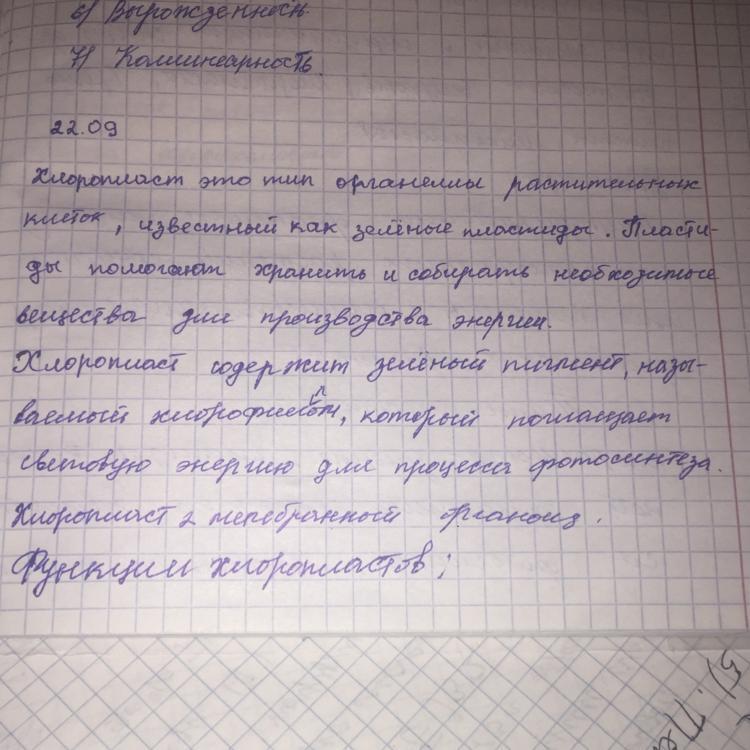 6) Вырожденность
7) Коллинеарность.
22.09
Хлоропласт это тип органеллы растительных
клеток, известный как зелёные пластиды. Пласти-
ды помогают хранить и собирать необходимые
вещества для производства энергии.
Хлоропласт содержит зелёный пигмент, назы-
ваемый хлорофиллом, который поглащает
световую энергию для процесса фотосинтеза.
Хлоропласт 2 мембранный органоид.
Функции хлоропластов;